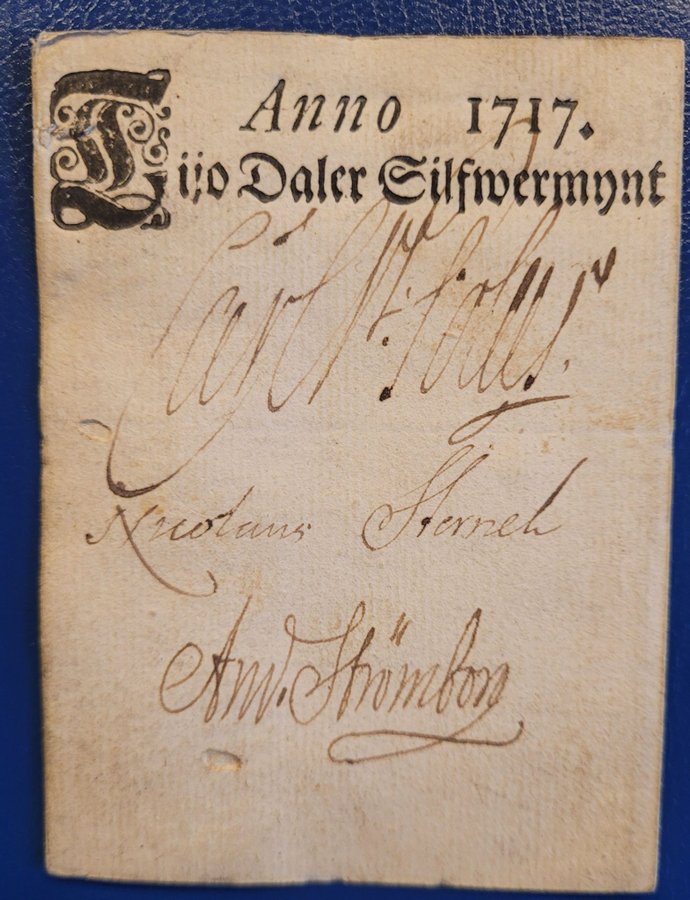 Anno 1717.
Tijo Daler Silfwermynt
Carl
Nicolaus Sternel
And. Strömborg